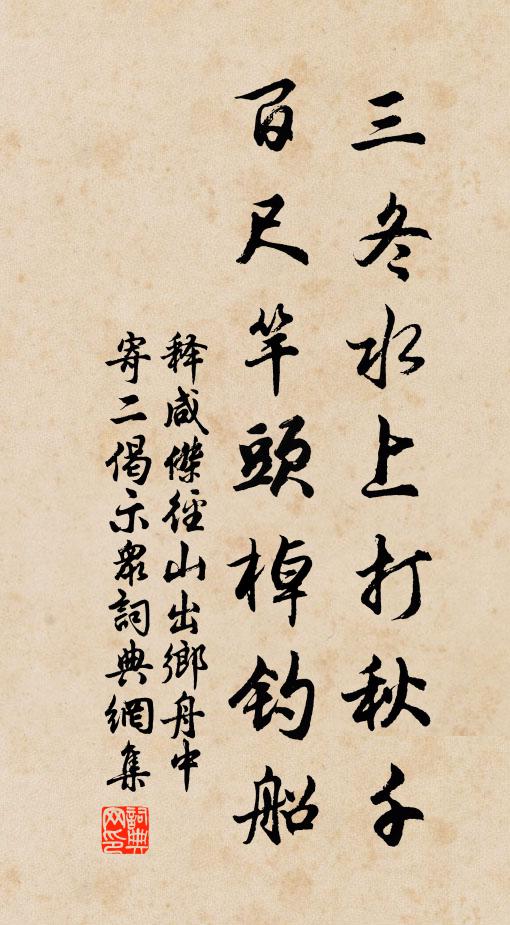 三冬水上打秋千
百尺竿頭棹钓船
释咸傑徑山出鄉舟中
寄二偈示衆詞典網集
詞典网印